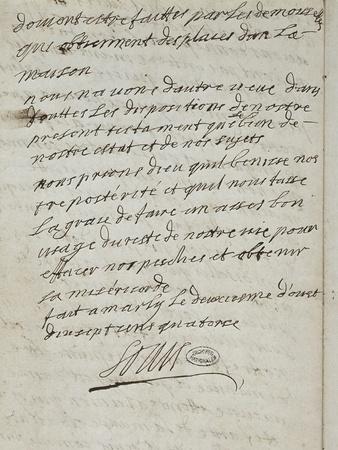 doivent estre faittes par les demoiselles
qui obtiennent des places dans la
maison
nous navons dautre veue dans
touttes les dispositions de nostre
present testament que le bien de
nostre estat et de nos sujets
nous prions dieu quil benisse nos
tre postérité et quil nous fasse
la grace de faire un asses bon
usage du reste de nostre vie pour
effacer nos peschés et obtenir
sa misericorde
fait a marly le deuxiesme daoust
dix sept cens quatorze
Louis
ARCHIVES NATIONALES